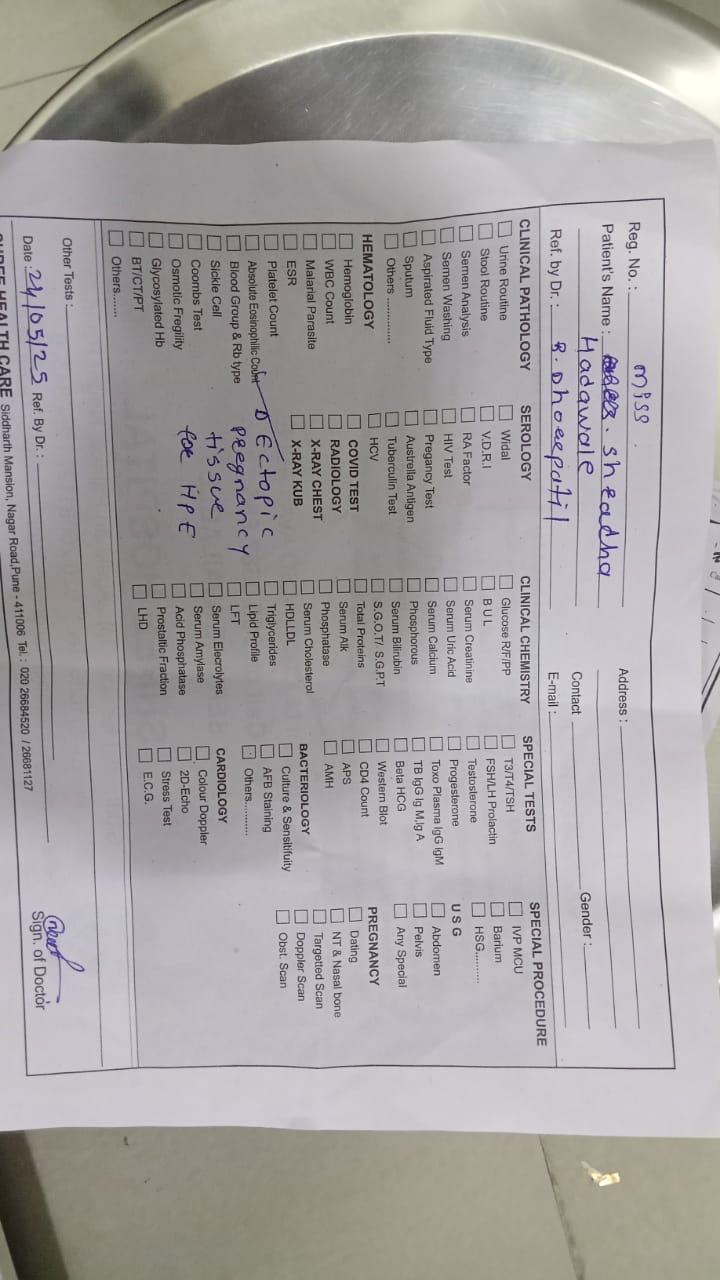 Reg. No. :
Miss.
Patient's Name : . Shradha
Hadawale
Ref. by Dr. : R. Dhoepatil
Address :
Contact
Gender :
E-mail :
CLINICAL PATHOLOGY
Urine Routine
Stool Routine
Semen Analysis
Semen Washing
Aspirated Fluid Type
Sputum
Others ..............
HEMATOLOGY
Hemoglobin
WBC Count
Malarial Parasite
ESR
Platelet Count
Absolute Eosinophilic Count
Blood Group & Rb type
Sickle Cell
Coombs Test
Osmotic Fregility
Glycosylated Hb
BT/CT/PT
Others.......
SEROLOGY
Widal
V.D.R.I
RA Factor
HIV Test
Pregancy Test
Austrella Antigen
Tuberculin Test
HCV
COVID TEST
RADIOLOGY
X-RAY CHEST
X-RAY KUB
Ectopic
pregnancy
tissue
for HPE
CLINICAL CHEMISTRY
Glucose R/F/PP
B U L
Serum Creatinine
Serum Uric Acid
Serum Calcium
Phosphorous
Serum Bilirubin
S.G.O.T/ S.G.P.T
Total Proteins
Serum Alk
Phosphatase
Serum Cholesterol
HDL/LDL
Triglycerides
Lipid Profile
LFT
Serum Elecrolytes
Serum Amylase
Acid Phosphatase
Prostaltic Fraction
LHD
SPECIAL TESTS
T3/T4/TSH
FSH/LH Prolactin
Testosterone
Progesterone
Toxo Plasma IgG IgM
TB IgG Ig M,Ig A
Beta HCG
Western Blot
CD4 Count
APS
AMH
BACTERIOLOGY
Culture & Sensitifuity
AFB Staining
Others...........
CARDIOLOGY
Colour Doppler
2D-Echo
Stress Test
E.C.G.
SPECIAL PROCEDURE
IVP MCU
Barium
HSG..........
U S G
Abdomen
Pelvis
Any Special
PREGNANCY
Dating
NT & Nasal bone
Targetted Scan
Doppler Scan
Obst. Scan
Other Tests :
Date : 24/05/25 Ref. By Dr. :
Sign. of Doctor
SHREE HEALTH CARE Siddharth Mansion, Nagar Road,Pune - 411006 Tel.: 020 26684520 / 26681127